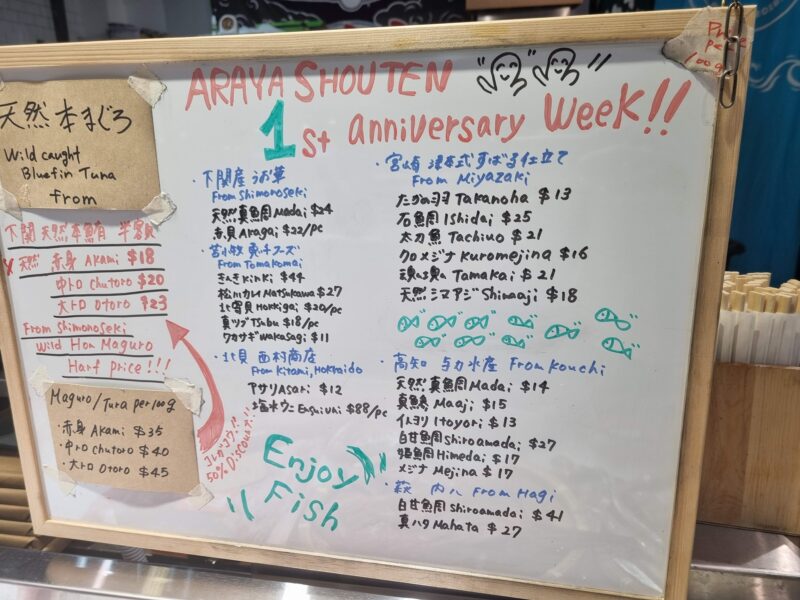 ARAYA SHOUTEN
1st anniversary Week!!
Price
per
100g
天然 本まぐろ
Wild caught
Bluefin Tuna
from
下関 天然本鮪 半額
天然 赤身 Akami $18
中トロ Chutoro $20
大トロ Otoro $23
From Shimonoseki
Wild Hon Maguro
Harf price!!!
Maguro/Tuna per 100g
・赤身 Akami $35
・中トロ Chutoro $40
・大トロ Otoro $45
50% Discount!!
・下関産
From Shimonoseki
天然真鯛 Madai $24
赤貝 Akagai $22/pc
・苫小牧
From Tomakomai
きんき Kinki $44
松川カレイ Matsukawa $27
北寄貝 Hokkigai $20/pc
真ツブ Tsubu $18/pc
ワカサギ Wakasagi $11
・北見 西村商店
From Kitami, Hokkaido
アサリ Asari $12
塩水ウニ Ensuiuni $88/pc
Enjoy
Fish
・宮崎 津本式 すぼる仕立て
From Miyazaki
タカノ羽 Takanoha $13
石鯛 Ishidai $25
太刀魚 Tachiuo $21
クロメジナ Kuromejina $16
Tamakai $21
天然シマアジ Shimaaji $18
・高知 与力水産 From Kouchi
天然真鯛 Madai $14
真鯵 Maaji $15
イトヨリ Itoyori $13
白甘鯛 Shiroamadai $27
姫鯛 Himedai $17
メジナ Mejina $17
・萩 From Hagi
白甘鯛 Shiroamadai $41
真ハタ Mahata $27